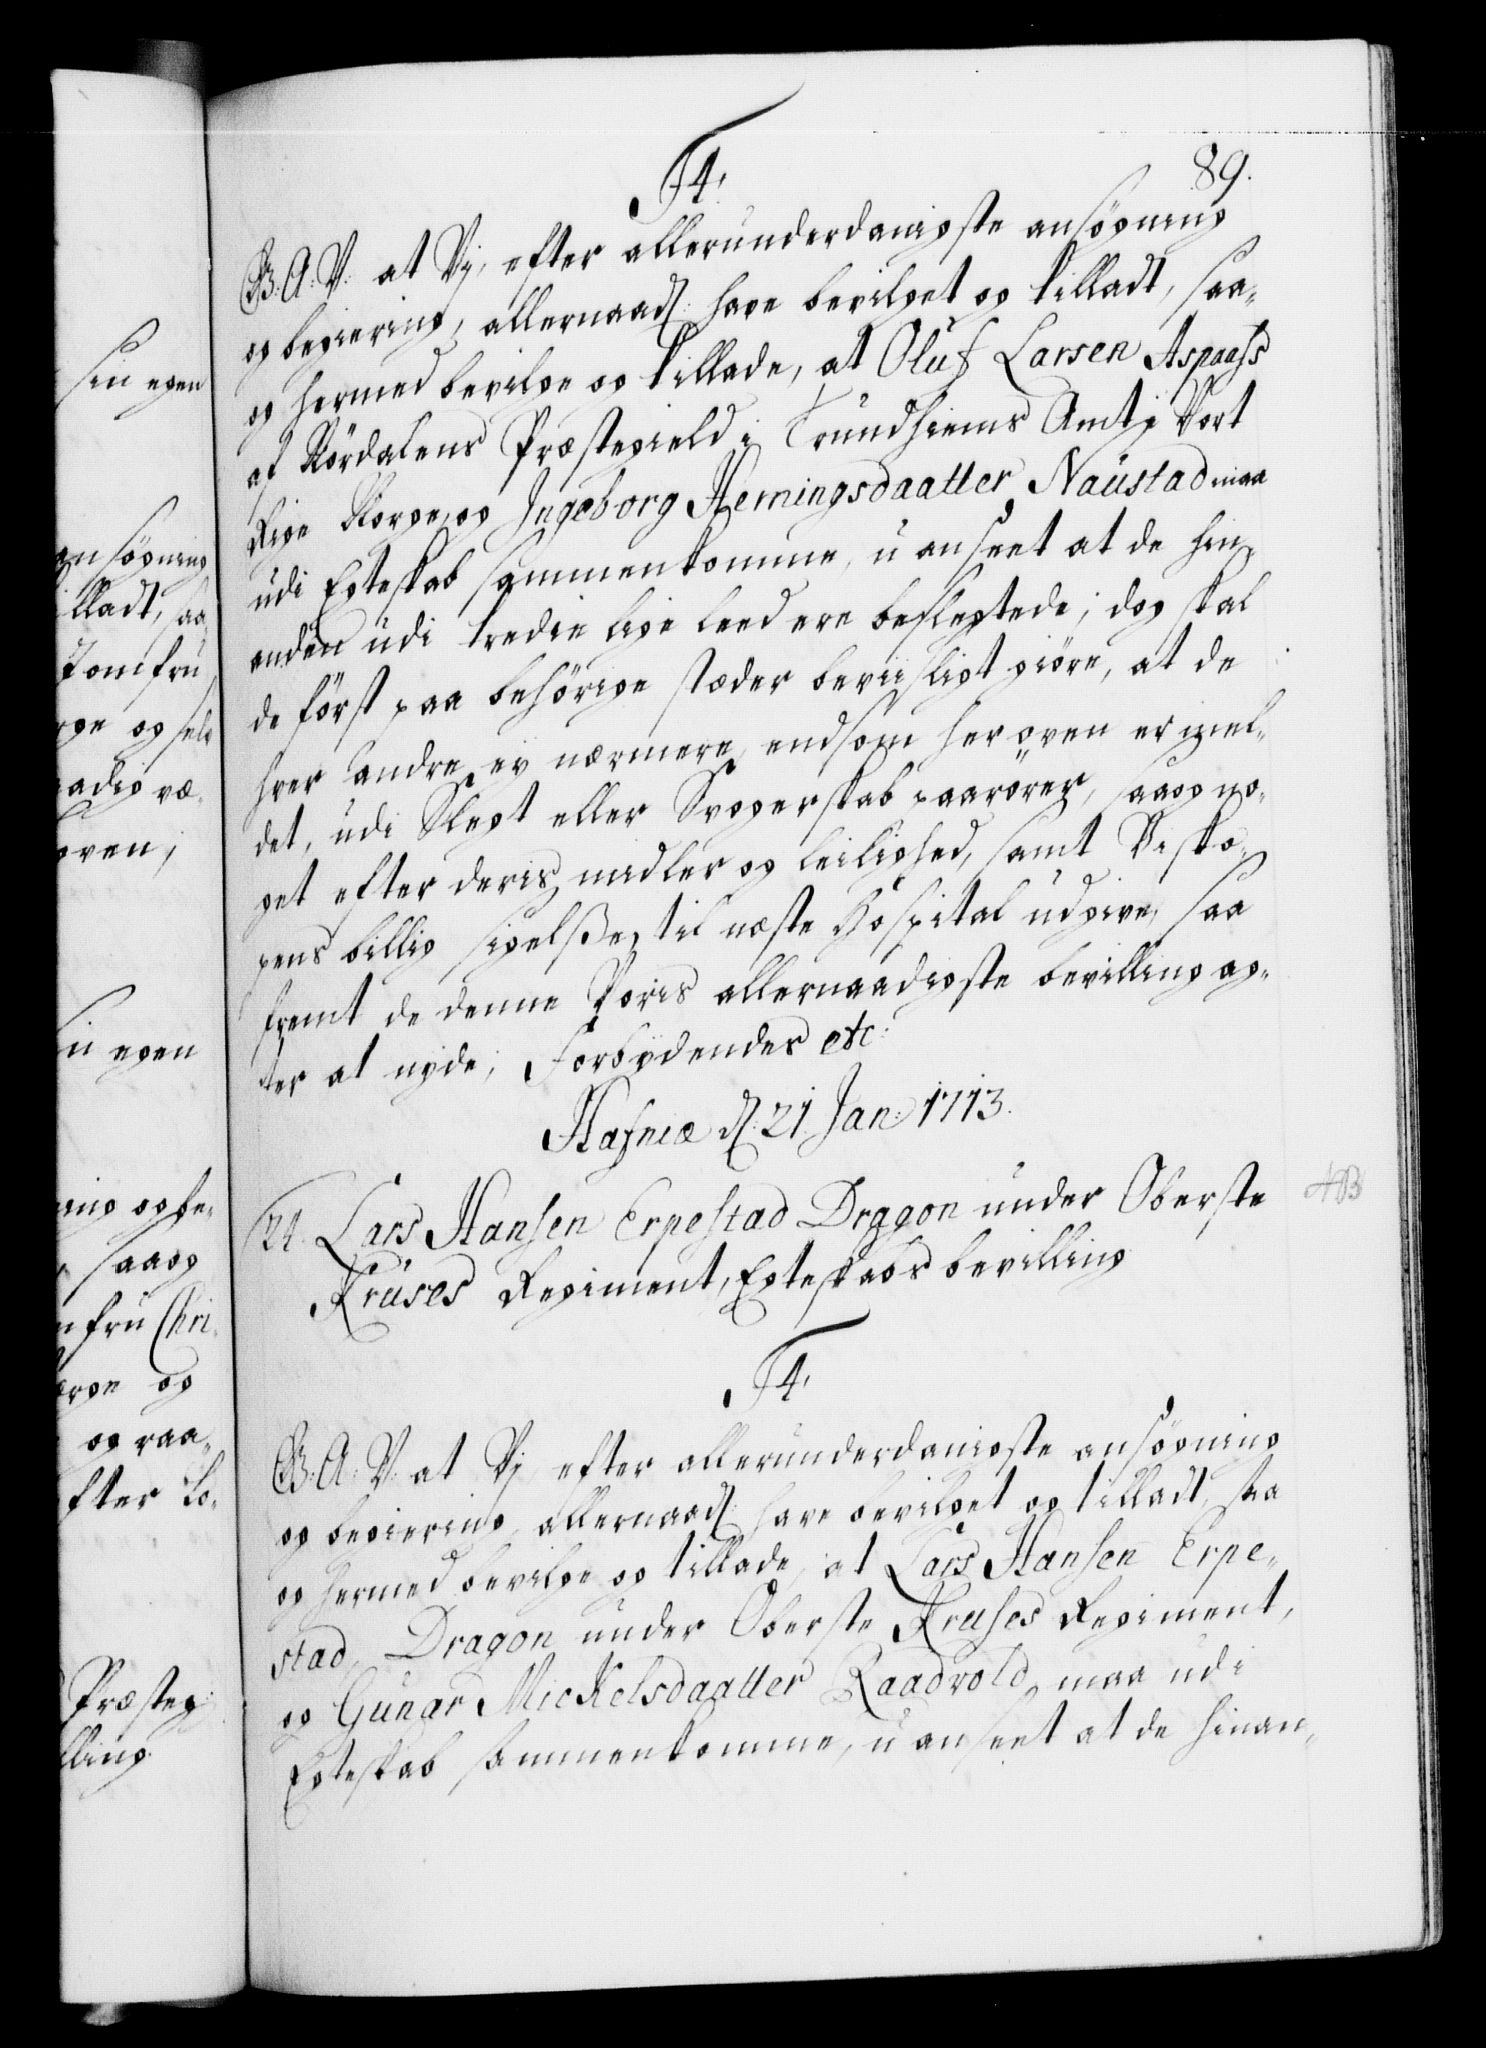 89.
F4.
G: A: V: at Vj, efter allerunderdanigste ansögning
og begiering, allernaadst have bevilget og tilladt, saa-
og hermed bevilge og tillade, at Oluf Larsen Aspaass
af Nördalens Præstegield i Trundhiems Amt j Vort
Rige Norge, og Ingeborg Hemingsdaatter Naustad maa
udi Egteskab sammenkomme, uanseet at de hin-
anden udi tredie lige leed ere beslegtede; dog skal
de först paa behörige stæder beviisligt giöre, at de
hver andre ey nærmere, endsom her oven er mel-
det, udi Slegt eller Svogerskab paarörer, saa og no-
get efter deris midler og leilighed, samt Bisko-
pens billig sigelße, til næste Hospital udgive, saa
fremt de denne Voris allernaadigste bevilling ag-
ter at nyde, Forbydendes etc:
Hafniæ d. 21. Jan: 1713.
24. Lars Hansen Erpestad Dragon under Oberste
Kruses Regiment, Egteskabs bevilling
AB
F4.
G: A: V: at Vj efter allerunderdanigste ansögning
og begiering, allernaadst have bevilget og tilladt, saa
og hermed bevilge og tillade, at Lars Hansen Erpe-
stad, Dragon under Oberste Kruses Regiment,
og Gunar Mickelsdaatter Raadvold maa udi
Egteskab sammenkomme, uanseet at de hinan-
sin egen
ansögning
lladt, saa
Jomfru
rge og selv
aadig væ-
oven;
in egen
ning og be-
saa og
mfru Chri-
orge og
og raa-
fter Lo-
Præsteg:
lling.